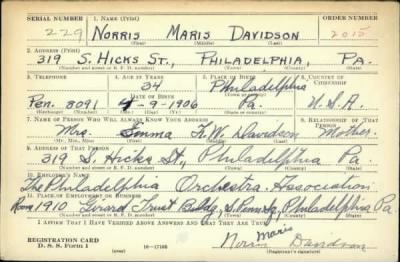 SERIAL NUMBER 1. NAME (Print) ORDER NUMBER
229 NORRIS MARIS DAVIDSON 2015
(First) (Middle) (Last)
2. ADDRESS (Print)
319 S. HICKS ST., PHILADELPHIA, PA.
(Number and street or R. F. D. number) (Town) (County) (State)
3. TELEPHONE 4. AGE IN YEARS 5. PLACE OF BIRTH 6. COUNTRY OF CITIZENSHIP
34 Philadelphia
DATE OF BIRTH
Pen. 8091 -9-1906 Pa. U.S.A.
7. NAME OF PERSON WHO WILL ALWAYS KNOW YOUR ADDRESS 8. RELATIONSHIP OF THAT PERSON
Mrs. Emma K.W. Davidson Mother.
(Mr., Mrs., Miss) (First) (Middle) (Last)
9. ADDRESS OF THAT PERSON
319 S. Hicks St., Philadelphia Pa.
(Number and street or R. F. D. number) (Town) (County) (State)
10. EMPLOYER'S NAME
The Philadelphia Orchestra Association
11. PLACE OF EMPLOYMENT OR BUSINESS
Room 1910 Girard Trust Bldg, S. Penn Sq, Philadelphia Pa
(Number and street or R. F. D. number) (Town) (County) (State)
I AFFIRM THAT I HAVE VERIFIED ABOVE ANSWERS AND THAT THEY ARE TRUE.
Maris
Norris Davidson
REGISTRATION CARD
D. S. S. Form 1 (over) 16—17105 (Registrant's signature)